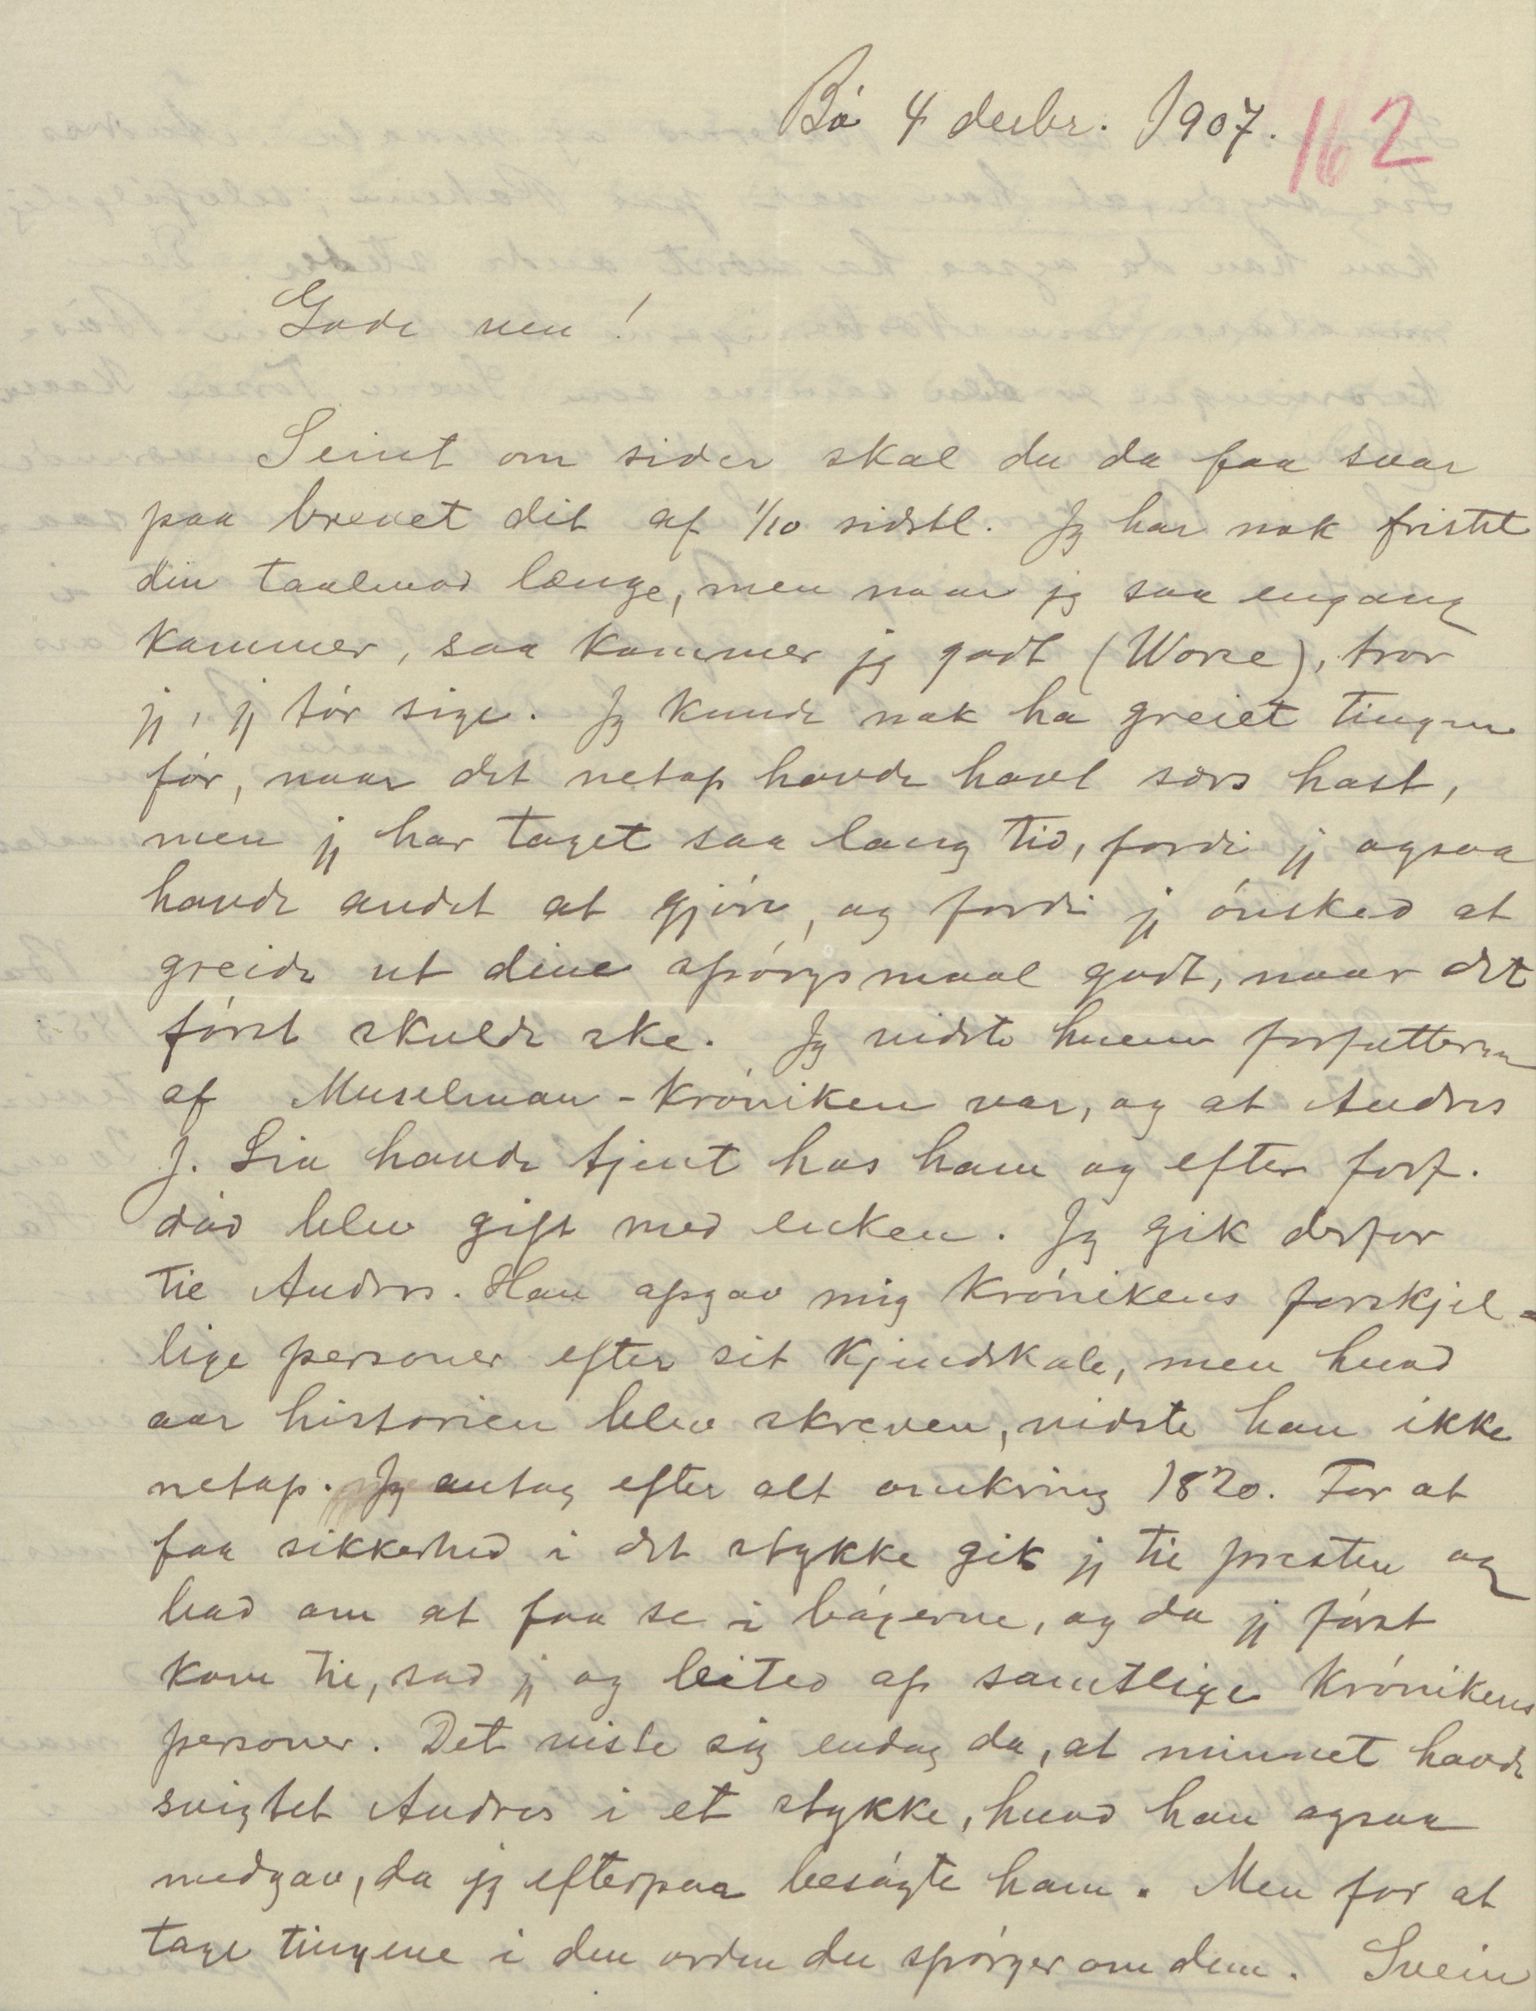 Bó 4 decbr. 1907.
162
Gode ven!
Seint om sider skal du da faa svar
paa brevet dit af 1/10 sidstl. Jg har nok fristet
din taalmod længe, men naar jg saa engang
kommer, saa kommer jg godt (Worse), tror
jg, jg tór sige. Jg kunde nok ha greiet tingen
fór, naar det netop havde havt sørs hast,
men jg har taget saa lang tid, fordi jg ogsaa
havde andet at gjóre, og fordi jg ónsked at
greide ut dine spórgsmaal godt, naar det
fórst skulde ske. Jg vidste hvem forfatteren
af Muselman-Króniken var, og at Andres
J. Lia havde tjent hos ham og efter forf.
dód blev gift med enken. Jg gik derfor
til Andres. Han opgav mig Krónikens forskjel-
lige personer efter sit Kjendskab, men hvad
aar historien blev skreven, vidste han ikke
netop. Jg antog efter alt omkring 1820. For at
faa sikkerhed i det stykke gik jg til presten og
bad om at faa se i bógerne, og da jg fórst
kom til, sad jg og leited op samtlige Krónikens
personer. Det viste sig endog da, at minnet havde
svigtet Andres i et stykke, hvad han ogsaa
medgav, da jg efterpaa besógte ham. Men for at
tage tingene i den orden du spórger om dem. Svein